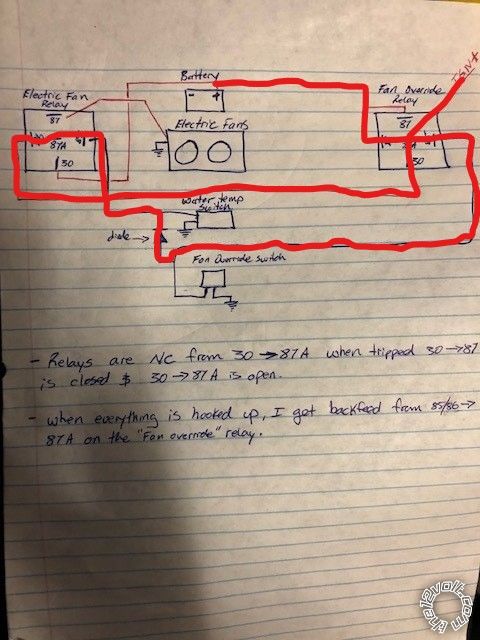 Battery
- +
IGN+
Electric Fan
Relay
87
87A
30
Electric Fans
Fan Override
Relay
87
30
Water temp
Switch
diode →
Fan Override Switch
- Relays are NC from 30 → 87A when tripped 30→87
is closed $ 30→87A is open.
- when everything is hooked up, I get backfeed from 85/86→
87A on the "Fan override" relay.
the12volt.com